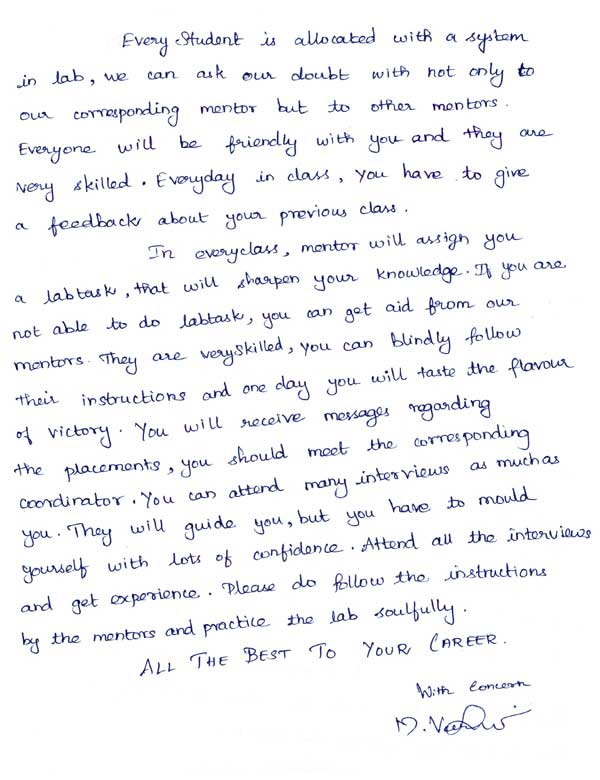 Every Student is allocated with a system
in lab, we can ask our doubt with not only to
our corresponding mentor but to other mentors.
Everyone will be friendly with you and they are
very skilled. Everyday in class, you have to give
a feedback about your previous class.
In everyclass, mentor will assign you
a labtask, that will sharpen your knowledge. If you are
not able to do labtask, you can get aid from our
mentors. They are veryskilled, you can blindly follow
their instructions and one day you will taste the flavour
of victory. You will receive messages regarding
the placements, you should meet the corresponding
coordinator. You can attend many interviews as muchas
you. They will guide you, but you have to mould
yourself with lots of confidence. Attend all the interviews
and get experience. Please do follow the instructions
by the mentors and practice the lab soulfully.
ALL THE BEST TO YOUR CAREER.
With Concern